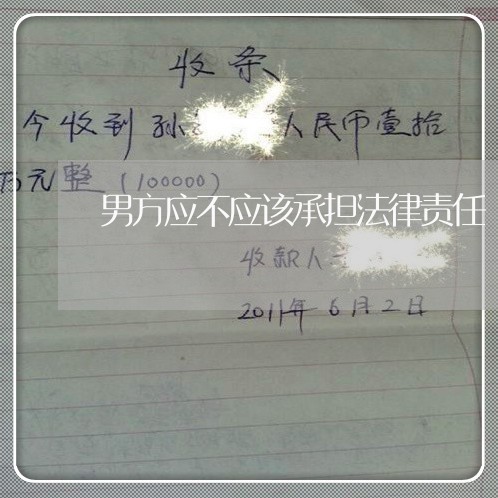 收条
今收到孙 人民币壹拾
万元整（100000）
男方应不应该承担法律责任
收款人
2011年6月2日